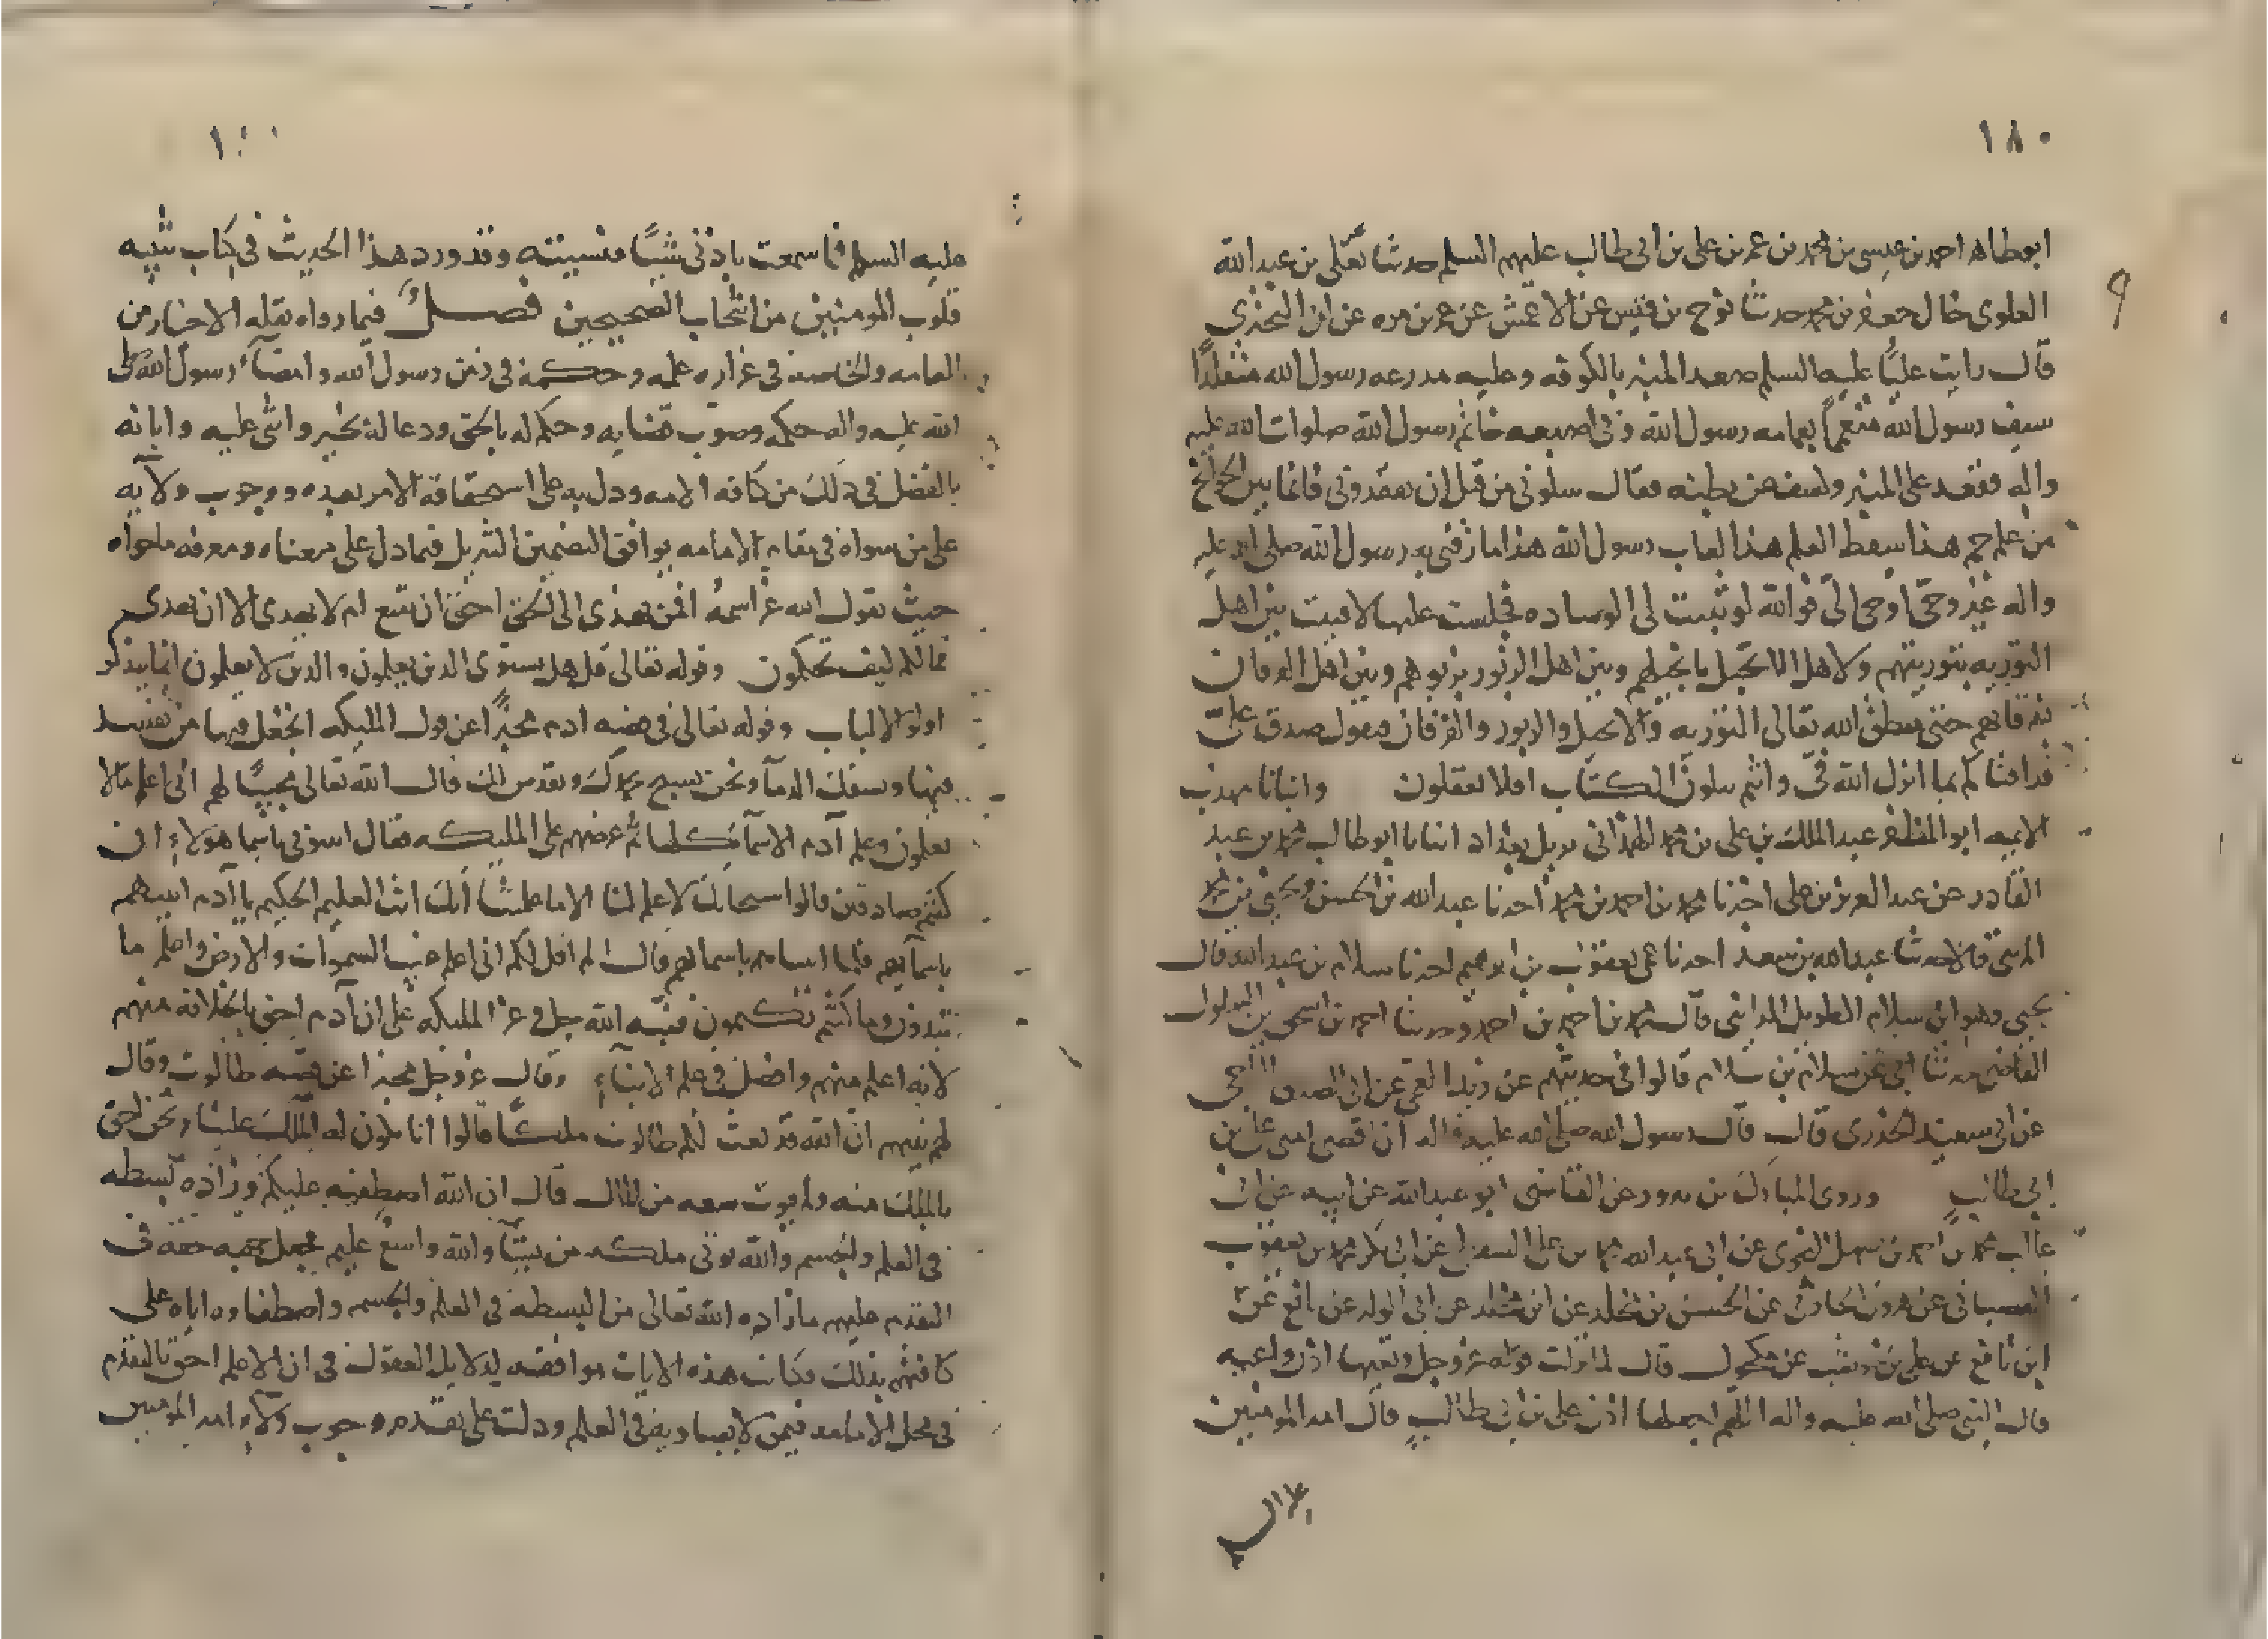 ١٨٠
ابو طاهر احمد بن عيسى بن محمد بن عمر بن علي بن ابي طالب عليهم السلم حدثنا يعلى بن عبد الله
العلوي خال جعفر بن محمد حدثنا نوح بن قيس عن الاعمش عن عمر بن مره عن ابي البحتري
قال رايت عليًا عليه السلم صعد المنبر بالكوفه وعليه مدرعه رسول الله متقلدًا
سيف رسول الله متعممًا بعمامه رسول الله وفي اصبعه خاتم رسول الله صلوات الله عليه
واله فقعد على المنبر وكشف عن بطنه فقال سلوني من قبل ان تفقدوني فانما بين الجوانح
من علم جم هذا سفط العلم هذا لعاب رسول الله هذا ما زقني به رسول الله صلى الله عليه
واله غير وحيّ اوحي الىّ فوالله لو ثنيت لي الوساده فجلست عليها لافتيت بين اهل
التوريه بتوريتهم ولاهل الانجيل بانجيلهم وبين اهل الزبور بزبورهم وبين اهل الفرقان
بفرقانهم حتى ينطق الله تعالى التوريه والانجيل والزبور والفرقان فيقول صدق عليّ
قد افتاكم بما انزل الله فيّ وانتم تتلون الكتاب افلا تعقلون وانبانا مهذب
الايمه ابو المظفر عبد الملك بن علي بن محمد الهمذاني نزيل بغداد انبانا ابو طالب محمد بن عبد
القادر عن عبد العزيز بن علي اخبرنا محمد بن احمد بن محمد اخبرنا عبد الله بن الحسن ويحيى بن محمد
قالا حدثنا عبد الله بن سعد اخبرنا عمي يعقوب بن ابرهيم اخبرنا سلام بن عبد الله قال
يحيى وهو ابن سلام الطويل المدائني قال محمد بن احمد وحدثنا احمد بن اسحق بن البهلول
القاضي حدثنا ابي عن سلام بن سلام قالوا في حديثهم عن زيد العمي عن ابي الصديق الناجي
عن ابي سعيد الخدري قال قال رسول الله صلى الله عليه واله ان اقضى امتي علي بن
ابي طالب وروى المبارك بن سرور عن القاضي ابو عبد الله عن ابيه عن ابي
غالب محمد بن احمد بن سهل النحوي عن ابي عبد الله محمد بن علي السقطي عن ابي بكر محمد بن يعقوب
عن هرون الحارثي عن الحسن بن مخلد عن ابن مخلد عن ابي الوليد عن نافع عن
ابن نافع عن علي بن عن مكحول قال لما نزلت قوله عز وجل وتعيها اذن واعيه
قال النبي صلى الله عليه واله اللهم اجعلها اذن علي بن ابي طالب قال امير المومنين
عليه السلم فما سمعت باذني شيًا فنسيته وقد ورد هذا الحديث في كتاب شبيه
قلوب المومنين من انتخاب الصحيحين فصلٌ فيما رواه نقله الاخبار من
العامه والخاصه في غزاره علمه وحكمه في زمن رسول الله وامضآ رسول الله صلى
الله عليه واله حكمه وصوب قضايه وحكم له بالحق ودعا له بخير واثنى عليه وابانه
بالفضل في ذلك من كافه الامه ودل به على استحقاقه الامر بعده ووجوب ولايه
على من سواه في مقام الامامه يوافق التضمين التنزيل فيما دل على معناه ومعرفه ماحواه
حيث يقول الله عز اسمه افمن يهدى الى الحق احق ان يتبع ام لا يهدي الا ان يهدى
فما لكم كيف تحكمون وقوله تعالى قل هل يستوى الذين يعلمون والذين لا يعلمون انما يتذكر
اولو الالباب وقوله تعالى في قصه ادم مخبرًا عن قول المليكه اتجعل فيها من يفسد
فيها ويسفك الدمآ ونحن نسبح بحمدك ونقدس لك قال الله تعالى مجيبًا لهم اني اعلم مالا
تعلمون وعلم آدم الاسمآ كلها ثم عرضهم على المليكه فقال انبوني باسما هولاء ان
كنتم صادقين قالوا سبحانك لا علم لنا الا ما علمتنا انك انت العليم الحكيم يا آدم انبيهم
باسمايهم فلما انباهم باسمايهم قال الم اقل لكم اني اعلم غيب السموات والارض واعلم ما
تبدون وما كنتم تكتمون فنبه الله جل وعز المليكه على ان آدم احق بالخلافه منهم
لانه اعلم منهم وافضل في علم الانباء وقال عز وجل مخبرا عن قصه طالوت وقال
لهم نبيهم ان الله قد بعث لكم طالوت ملكًا قالوا انى يكون له الملك علينا ونحن احق
بالملك منه ولم يوت سعه من المال قال ان الله اصطفيه عليكم وزاده بسطه
في العلم والجسم والله يوتي ملكه من يشآ والله واسع عليم فجعل جهه حقه في
التقدم عليهم ما زاده الله تعالى من البسطه في العلم والجسم واصطفاوه اياه على
كافتهم بذلك وكانت هذه الايات موافقه لدلايل العقول في ان الاعلم احق بالتقدم
في محل الامامه فيمن لا يساويه في العلم ودلت على تقدم وجوب ولاء امير المومنين